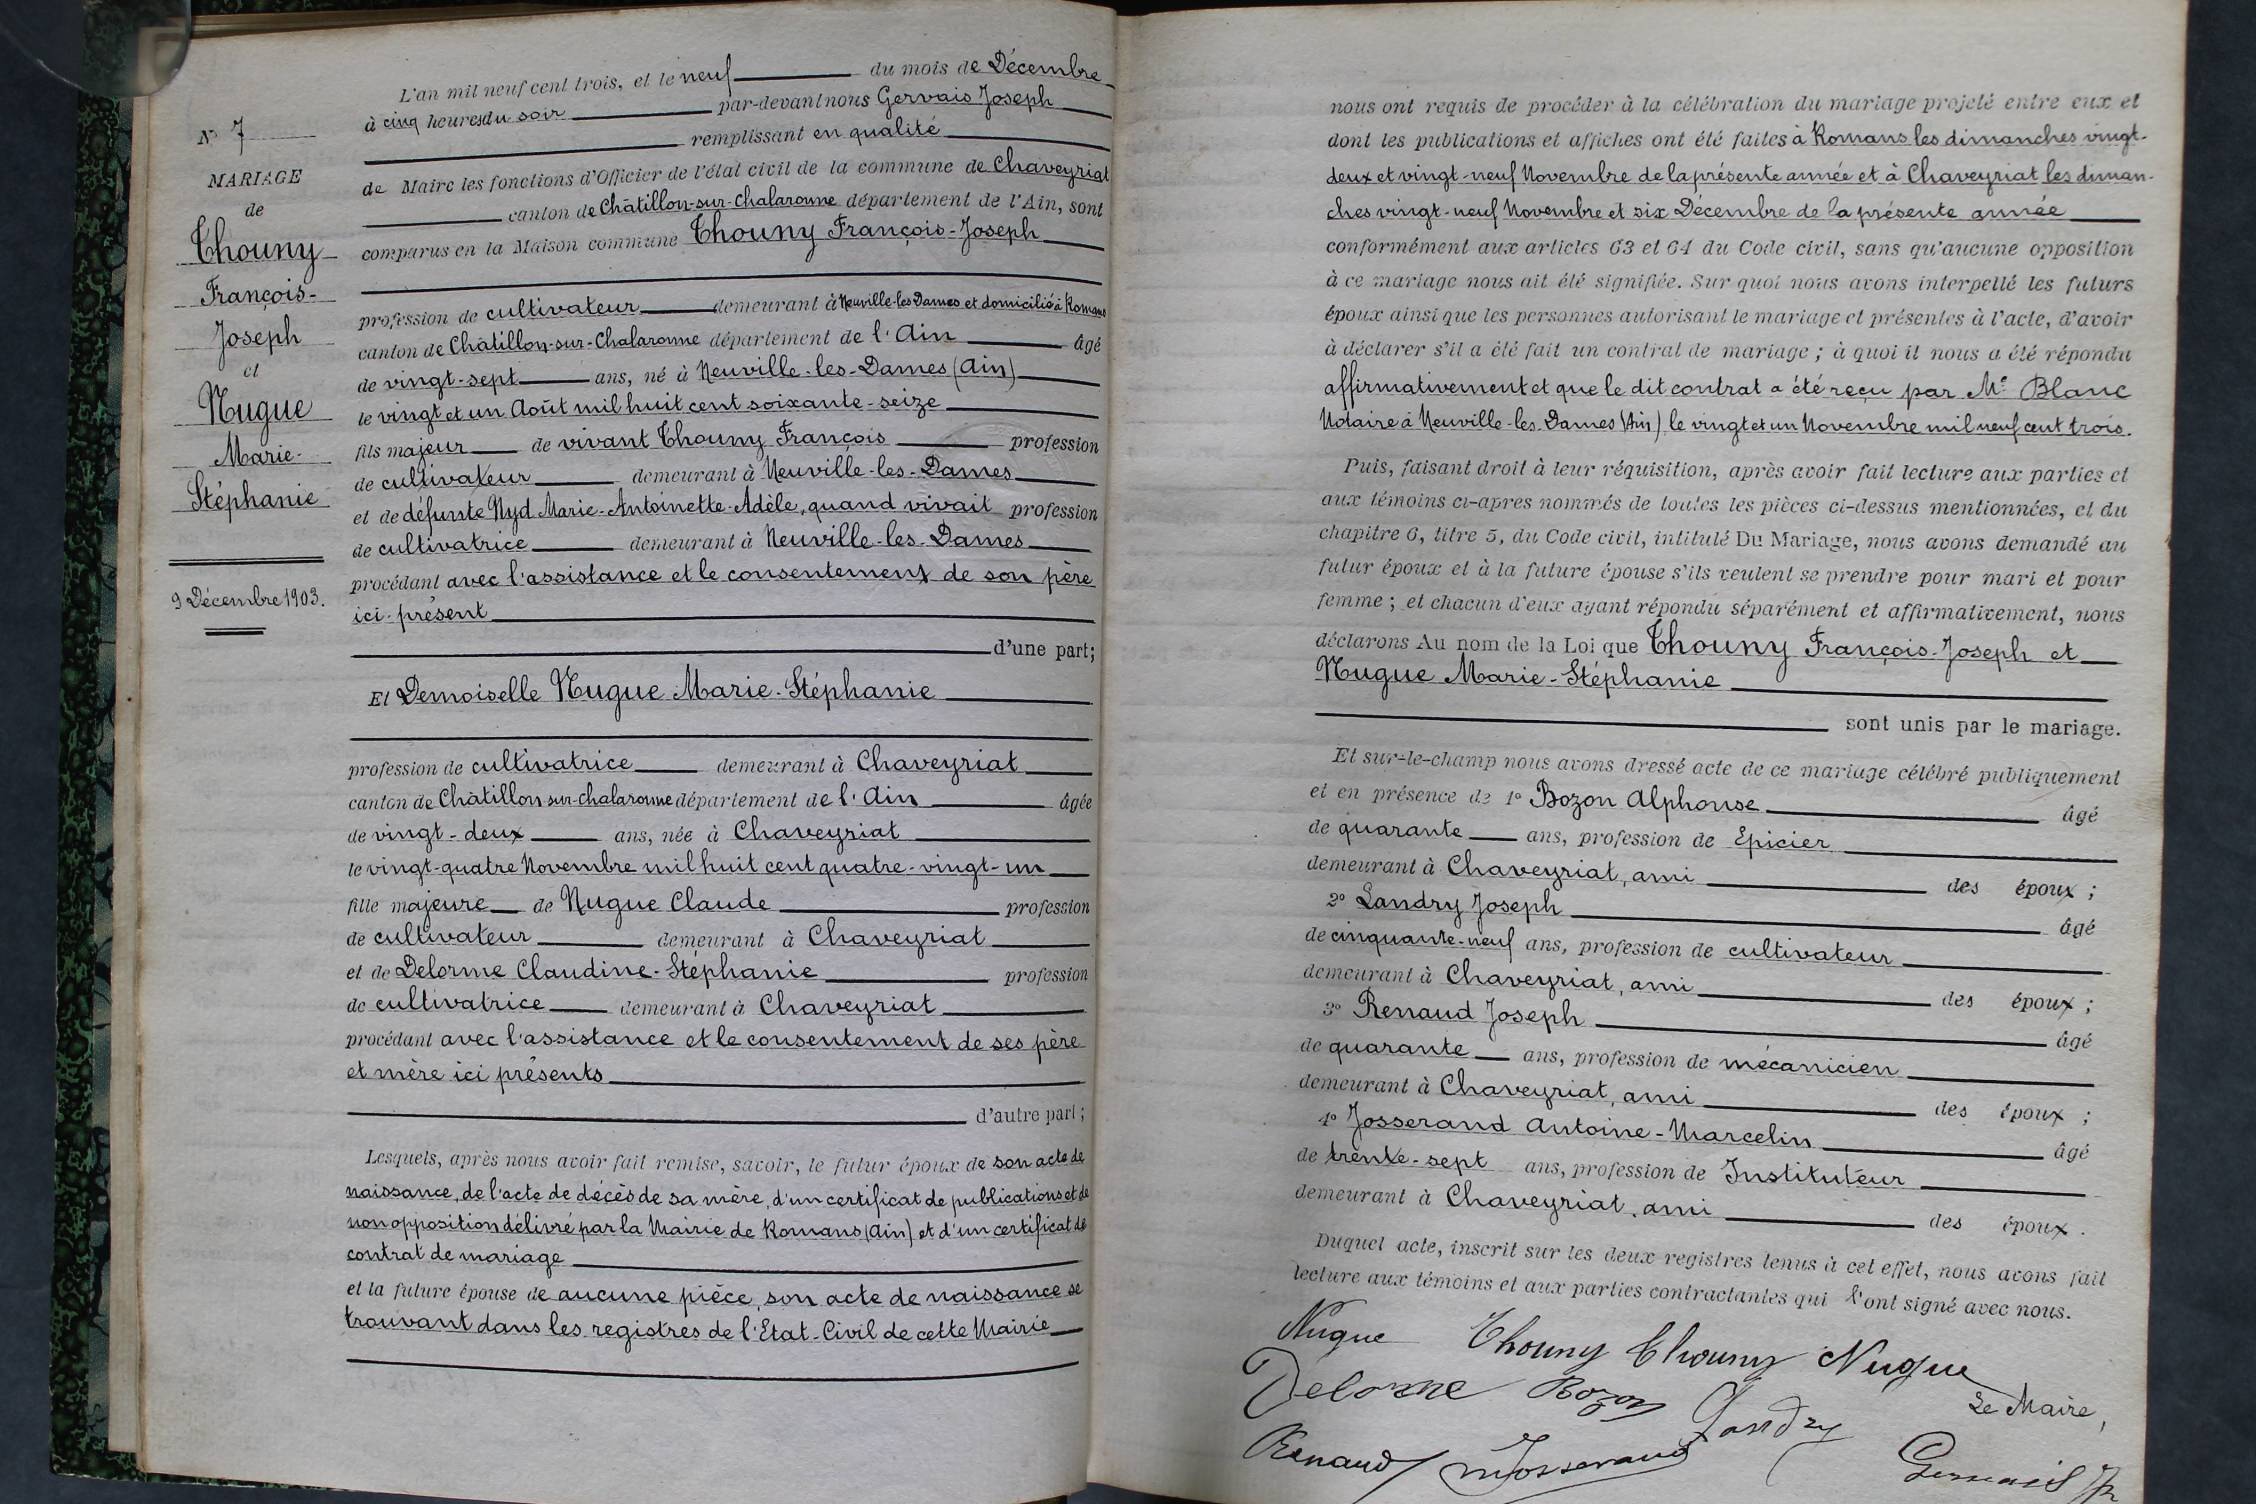 N° 7
MARIAGE
de
Thouny
François-
Joseph
et
Nugue
Marie-
Stéphanie
9 Décembre 1903.
L'an mil neuf cent trois, et le neuf du mois de Décembre
à cinq heures du soir par-devant nous Gervais Joseph
remplissant en qualité
de Maire les fonctions d'Officier de l'état civil de la commune de Chaveyriat
canton de Châtillon-sur-Chalaronne département de l'Ain, sont
comparus en la Maison commune Thouny François-Joseph
profession de cultivateur demeurant à Neuville-les-Dames et domicilié à Romans
canton de Châtillon-sur-Chalaronne département de l'Ain âgé
de vingt-sept ans, né à Neuville-les-Dames (Ain)
le vingt et un Août mil huit cent soixante-seize
fils majeur de vivant Thouny François profession
de cultivateur demeurant à Neuville-les-Dames
et de défunte Nyd Marie-Antoinette-Adèle, quand vivait profession
de cultivatrice demeurant à Neuville-les-Dames
procédant avec l'assistance et le consentement de son père
ici-présent
d'une part;
Et Demoiselle Nugue Marie-Stéphanie
profession de cultivatrice demeurant à Chaveyriat
canton de Châtillon-sur-Chalaronne département de l'Ain âgée
de vingt-deux ans, née à Chaveyriat
le vingt-quatre Novembre mil huit cent quatre-vingt-un
fille majeure de Nugue Claude profession
de cultivateur demeurant à Chaveyriat
et de Delorme Claudine-Stéphanie profession
de cultivatrice demeurant à Chaveyriat
procédant avec l'assistance et le consentement de ses père
et mère ici présents
d'autre part;
Lesquels, après nous avoir fait remise, savoir, le futur époux de son acte de
naissance, de l'acte de décès de sa mère, d'un certificat de publications et de
non opposition délivré par la Mairie de Romans (Ain) et d'un certificat de
contrat de mariage
et la future épouse de aucune pièce, son acte de naissance se
trouvant dans les registres de l'Etat-Civil de cette Mairie
nous ont requis de procéder à la célébration du mariage projeté entre eux et
dont les publications et affiches ont été faites à Romans les dimanches vingt-
deux et vingt-neuf Novembre de la présente année et à Chaveyriat les diman-
ches vingt-neuf Novembre et six Décembre de la présente année
conformément aux articles 63 et 64 du Code civil, sans qu'aucune opposition
à ce mariage nous ait été signifiée. Sur quoi nous avons interpellé les futurs
époux ainsi que les personnes autorisant le mariage et présentes à l'acte, d'avoir
à déclarer s'il a été fait un contrat de mariage ; à quoi il nous a été répondu
affirmativement et que le dit contrat a été reçu par Me Blanc
Notaire à Neuville-les-Dames (Ain) le vingt et un Novembre mil neuf cent trois.
Puis, faisant droit à leur réquisition, après avoir fait lecture aux parties et
aux témoins ci-après nommés de toutes les pièces ci-dessus mentionnées, et du
chapitre 6, titre 5, du Code civil, intitulé Du Mariage, nous avons demandé au
futur époux et à la future épouse s'ils veulent se prendre pour mari et pour
femme ; et chacun d'eux ayant répondu séparément et affirmativement, nous
déclarons Au nom de la Loi que Thouny François-Joseph et
Nugue Marie-Stéphanie
sont unis par le mariage.
Et sur-le-champ nous avons dressé acte de ce mariage célébré publiquement
et en présence de 1° Bozon Alphonse âgé
de quarante ans, profession de Epicier
demeurant à Chaveyriat, ami des époux ;
2° Landry Joseph âgé
de cinquante-neuf ans, profession de cultivateur
demeurant à Chaveyriat, ami des époux ;
3° Renaud Joseph âgé
de quarante ans, profession de mécanicien
demeurant à Chaveyriat, ami des époux ;
4° Josserand Antoine-Marcelin âgé
de trente-sept ans, profession de Instituteur
demeurant à Chaveyriat, ami des époux.
Duquel acte, inscrit sur les deux registres tenus à cet effet, nous avons fait
lecture aux témoins et aux parties contractantes qui l'ont signé avec nous.
Nugue Thouny Thouny Nugue
Delorme Bozon Landry Le Maire,
Renaud Josserand Gervais Jh